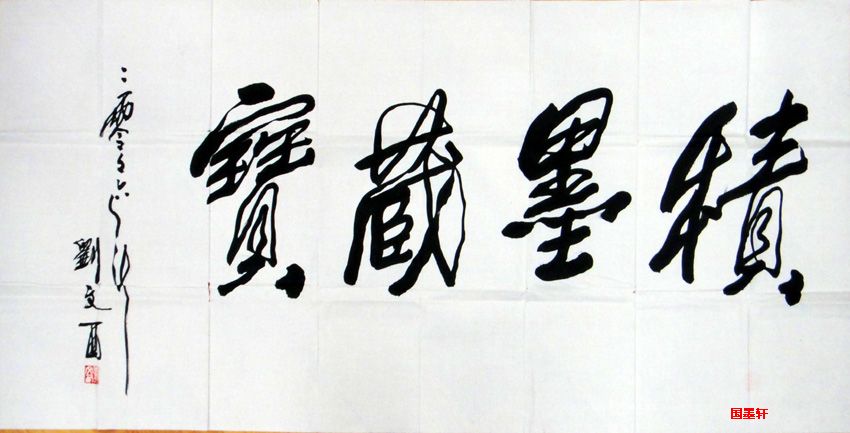 積墨藏寶
二零零六年
劉文酉
国墨轩